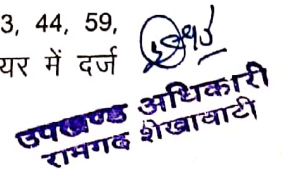 3, 44, 59,
यर में दर्ज
उपखण्ड अधिकारी
रामगढ शेखावाटी